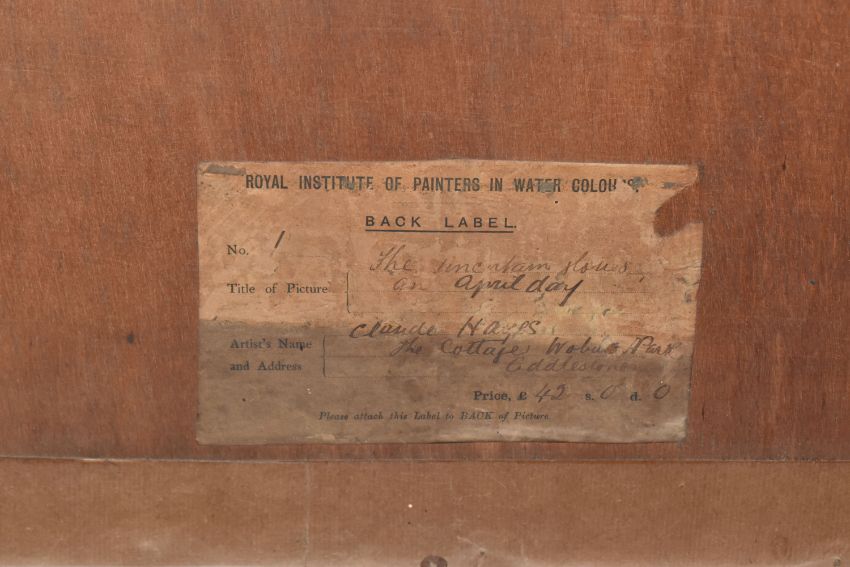 ROYAL INSTITUTE OF PAINTERS IN WATER COLOU'S.
BACK LABEL.
No. 1
Title of Picture
The uncertain
an April day
Artist's Name
and Address
Claude Hayes
The Cottage, Woburn Park
Addlestone
Price, £ 42 s. 0 d. 0
Please attach this Label to BACK of Picture.